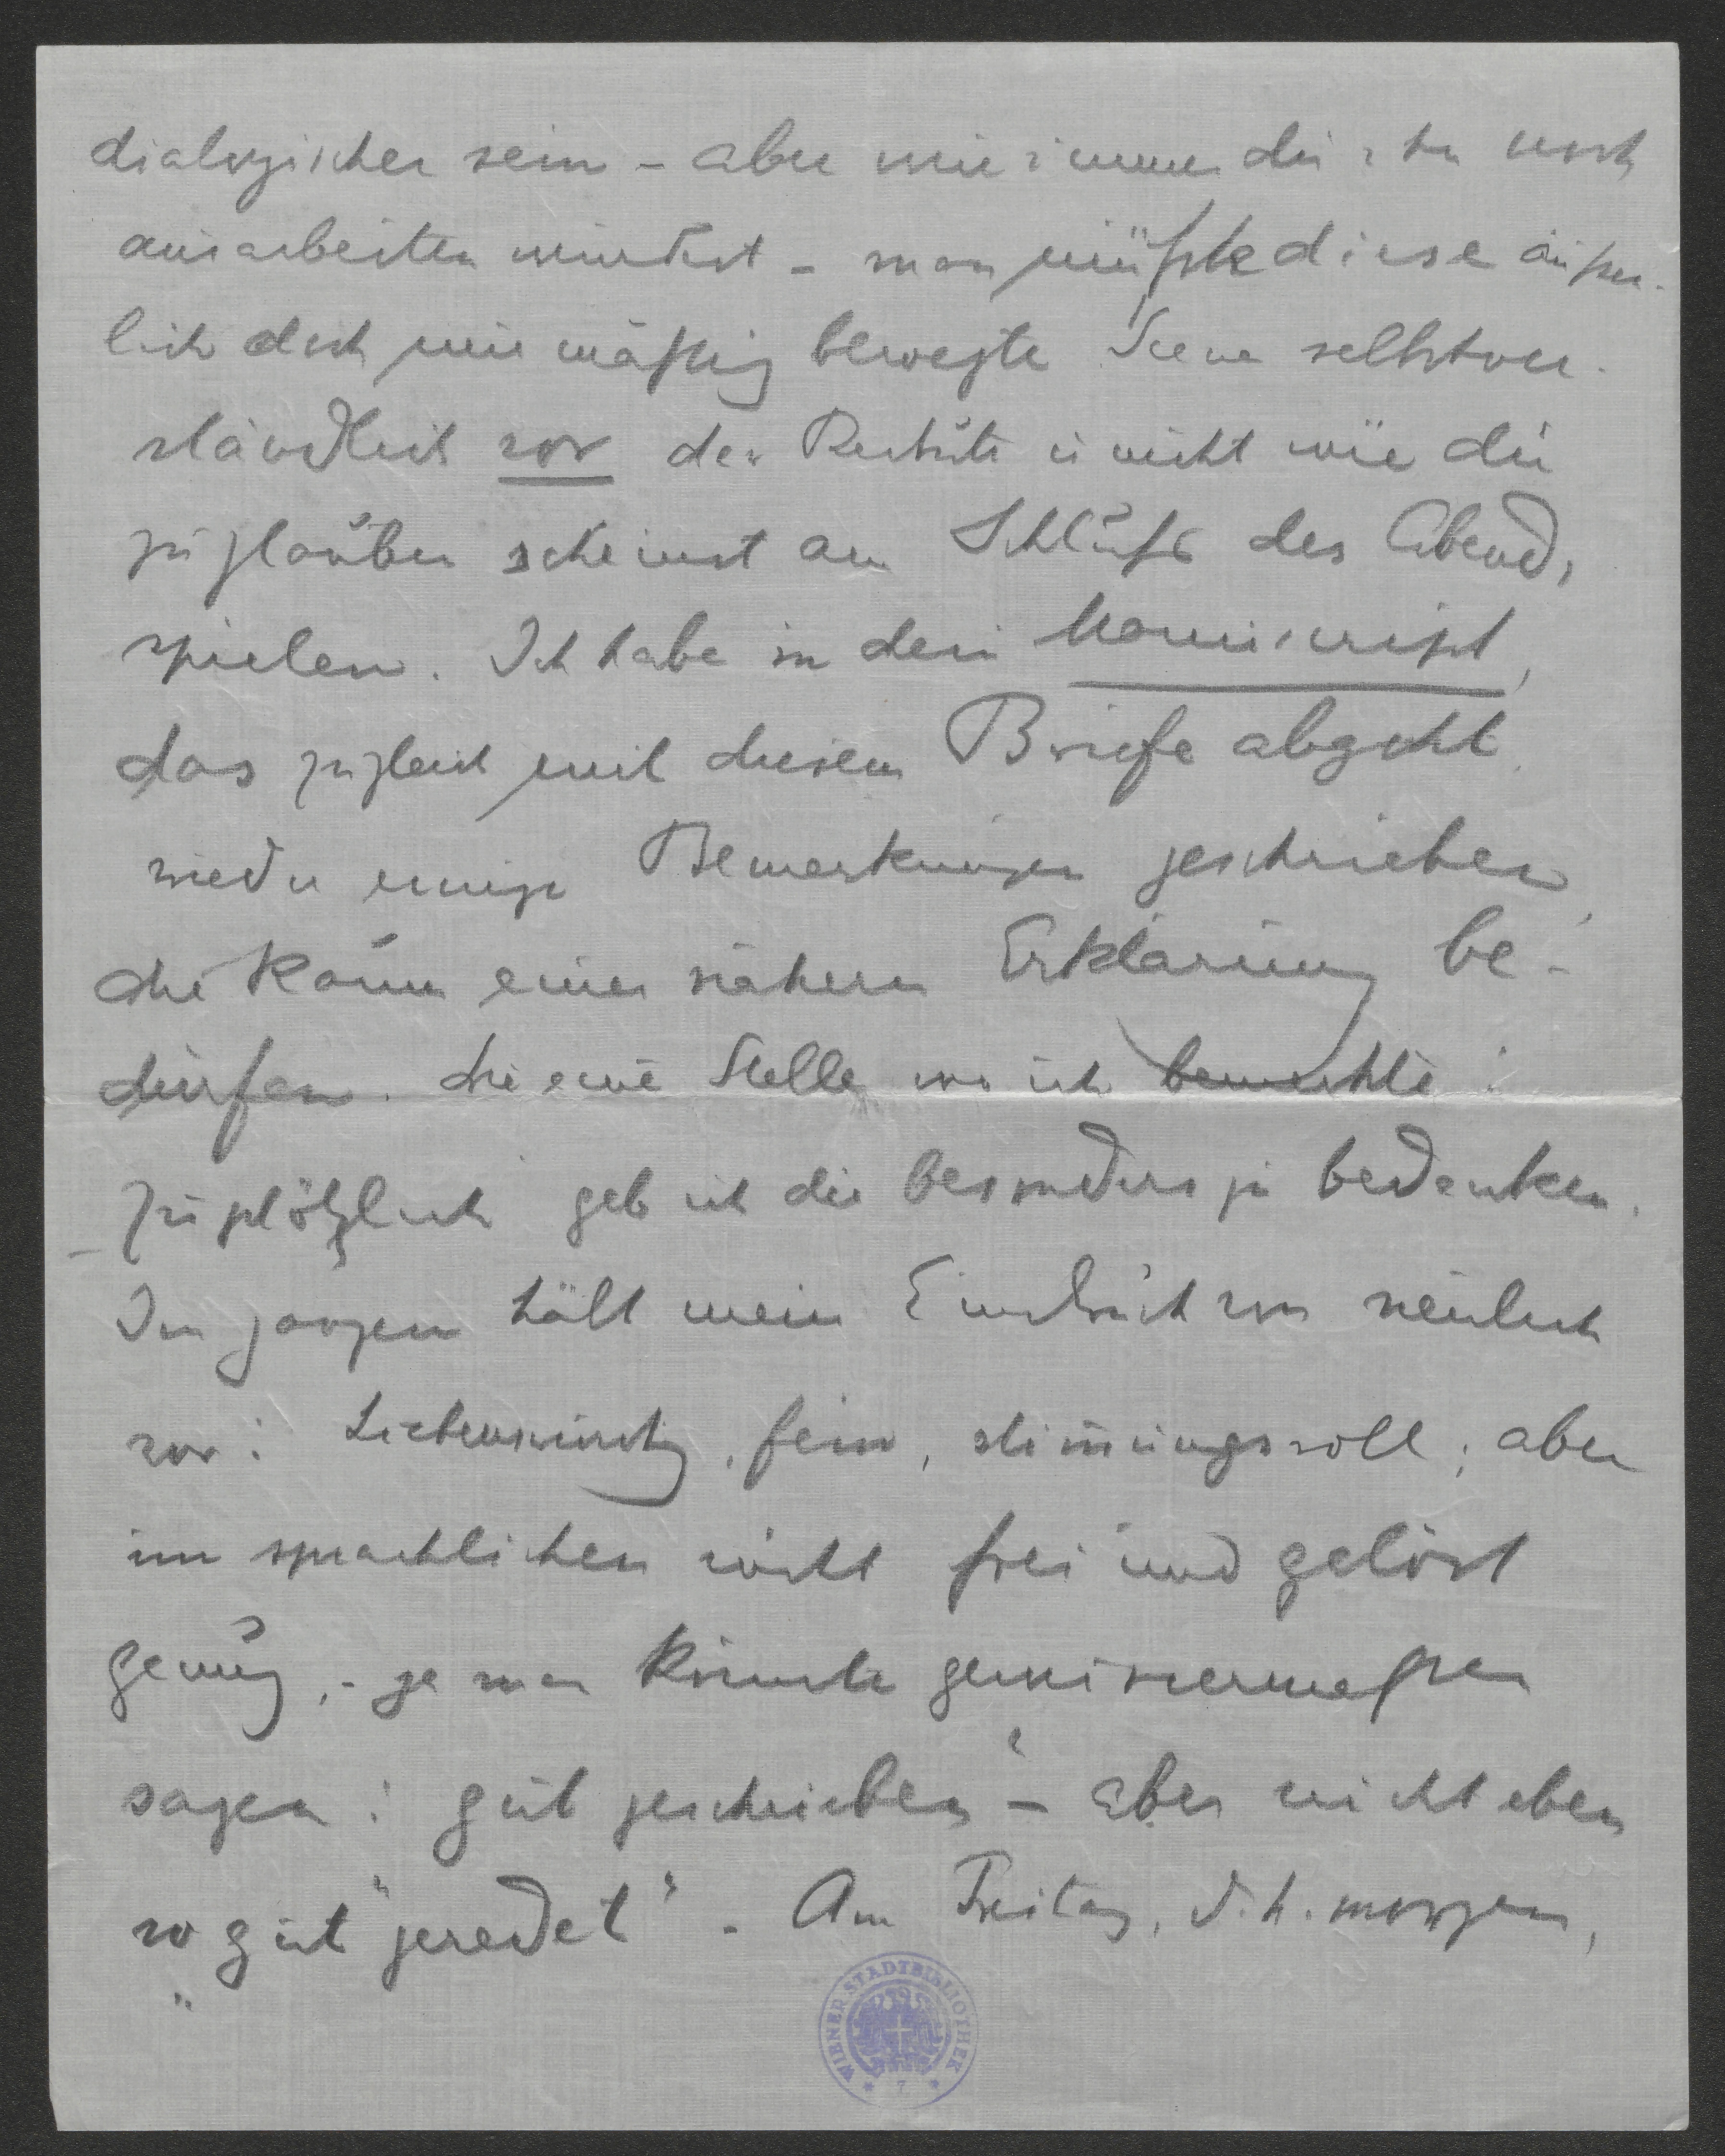 dialogischer sein – aber wie immer du sie noch
ausarbeiten würdest – man müßte diese äußer-
lich doch nur mäßig bewegte Scene selbstver-
ständlich vor der u nicht wie du
zu glauben scheinst am Schluß des Abends
spielen. Ich habe in dein Manuscript,
das zugleich mit diesem Briefe abgeht,
wieder einige Bemerkungen geschrieben,
die kaum einer nähern Erklärung be-
dürfen. Die eine Stelle wo ich bemerkte :
zu plötzlich geb ich dir besonders zu bedenken.
– Im ganzen hält mein Eindruck von neulich
vor: Liebenswürdig, fein, stim̄ungsvoll; aber
im sprachlichen nicht frei und gelöst
genug, – ja man könnte gewissermaßen
sagen: gut geschrieben" – aber nicht eben
so gut "geredet". – Am Freitag, d. h. morgen,
WIENER STADTBIBLIOTHEK
7